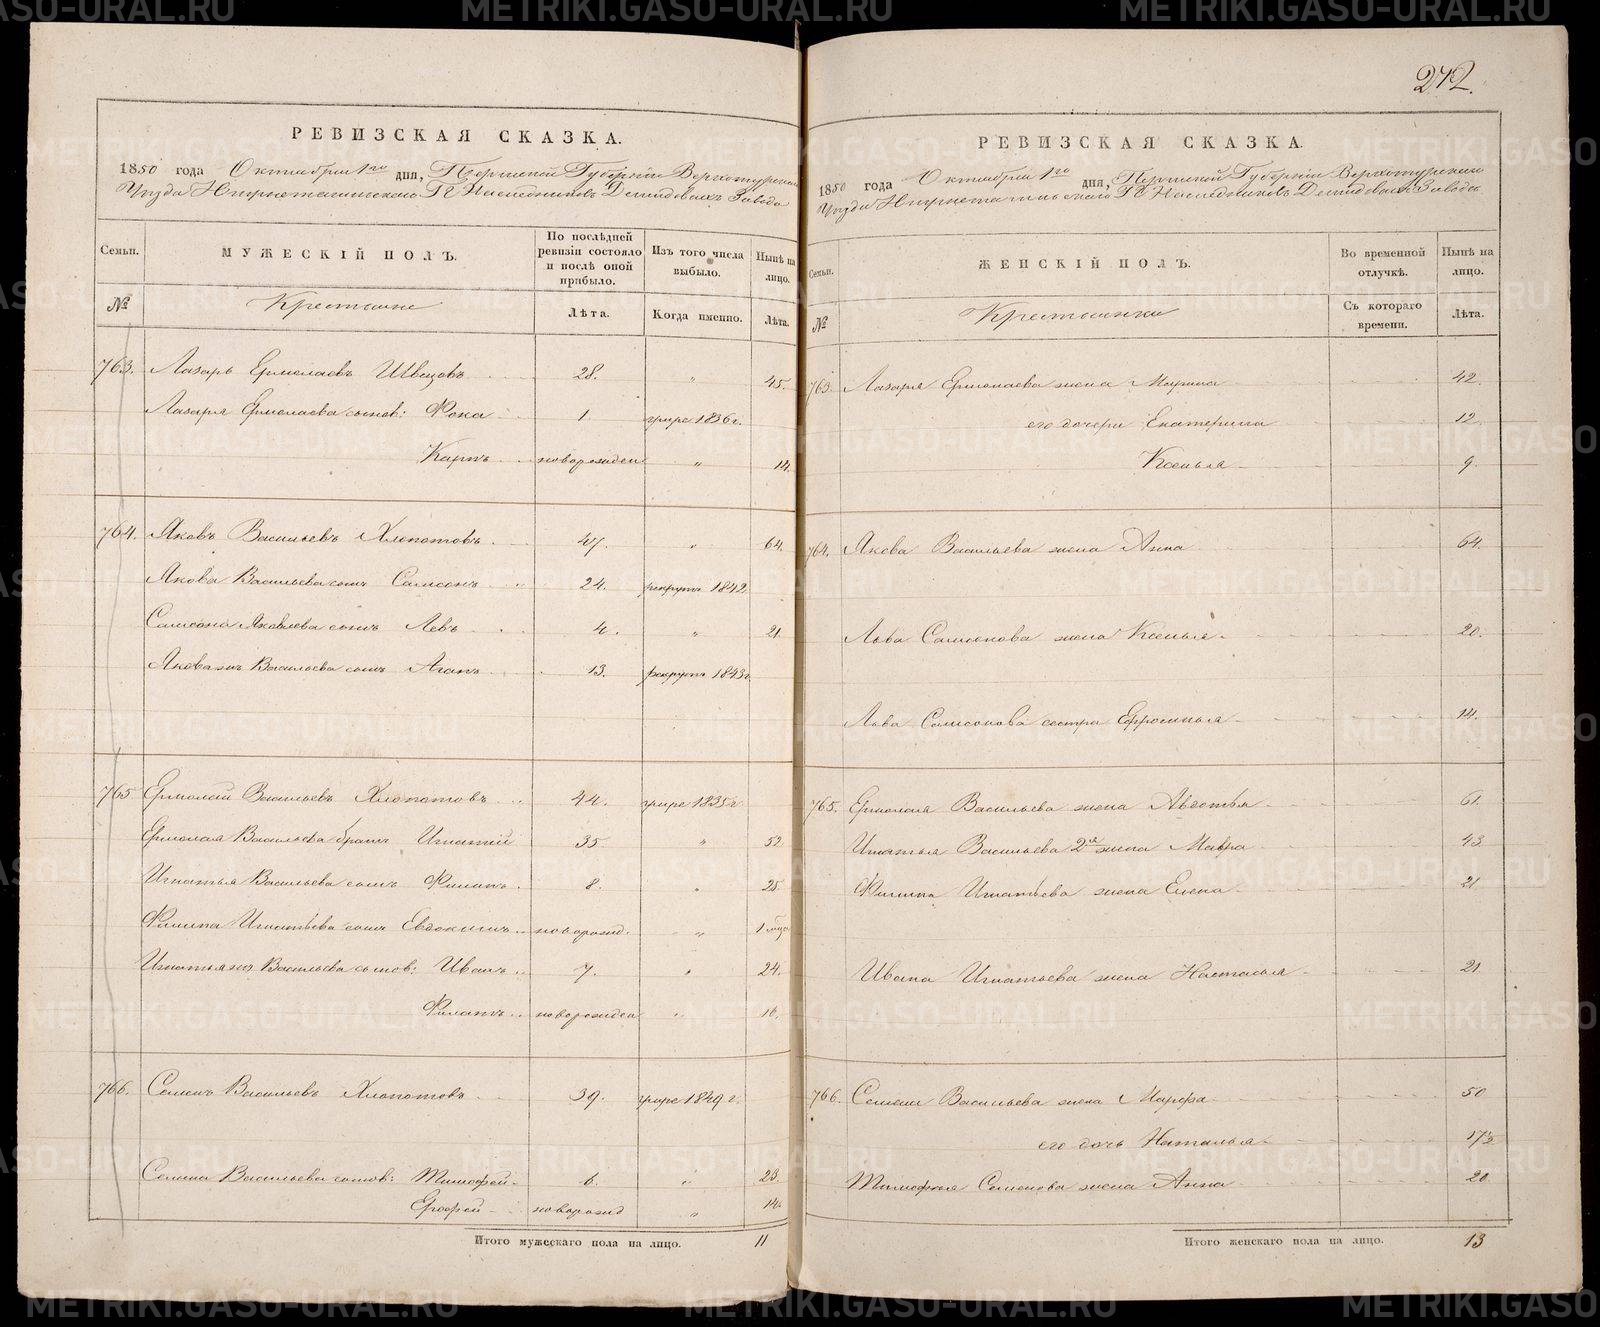 РЕВИЗСКАЯ СКАЗКА.
1850 года Октября 1го дня, Пермской Губернiи Верхотурскаго
Уѣзда Нижнетагильскаго Гг. Наслѣдниковъ Демидовыхъ Завода
Семьи.
МУЖЕСКIЙ ПОЛЪ.
По послѣдней ревизiи состояло и послѣ оной прибыло.
Изъ того числа выбыло.
Нынѣ на лицо.
№ Крестьяне Лѣта. Когда именно. Лѣта.
763. Лазарь Ермолаевъ Швецовъ 28. " 45
Лазаря Ермолаева сынов: Фока 1. умре 1836 г.
Карпъ новорожден " 14.
764. Яковъ Васильевъ Хлопотовъ 47. " 64.
Якова Васильева сынъ Самсонъ 24. рекрут 1842.
Самсона Яковлева сынъ Левъ 4. " 21.
Якова ж Васильева сынъ Агапъ 13. рекрут 1843 г.
765 Ермолай Васильевъ Хлопотовъ 44. умре 1835 г
Ермолая Васильева братъ Игнатiй 35 " 52
Игнатья Васильева сынъ Филипъ 8. " 25.
Филипа Игнатьева сынъ Евдокимъ новорожд. " 1 мѣс
Игнатья ж Васильева сынов: Иванъ 7. " 24.
Филатъ новорожден " 16.
766. Семенъ Васильевъ Хлопотовъ 39. умре 1849 г.
Семена Васильева сынов: Тимофей 6. " 23.
Ерофей новорожд " 14.
Итого мужескаго пола на лицо. 11
272.
РЕВИЗСКАЯ СКАЗКА.
1850 года Октября 1го дня, Пермской Губернiи Верхотурскаго
Уѣзда Нижнетагильскаго Гг. Наслѣдниковъ Демидовыхъ Завода
Семьи.
ЖЕНСКIЙ ПОЛЪ.
Во временной отлучкѣ.
Нынѣ на лицо.
№ Крестьянки Съ котораго времени. Лѣта.
763. Лазаря Ермолаева жена Марина 42.
его дочери Екатерина 12.
Ксенья 9.
764. Якова Васильева жена Анна 64.
Льва Самсонова жена Ксенья 20.
Льва Самсонова сестра Ефросинья 14.
765. Ермолая Васильева жена Авдотья 61.
Игнатья Васильева 2я жена Мавра 43.
Филипа Игнатьева жена Елена 21
Ивана Игнатьева жена Настасья 21.
766. Семена Васильева жена Марфа 50
его дочь Наталья 17½
Тимофея Семенова жена Анна 20
Итого женскаго пола на лицо. 13
METRIKI.GASO-URAL.RU